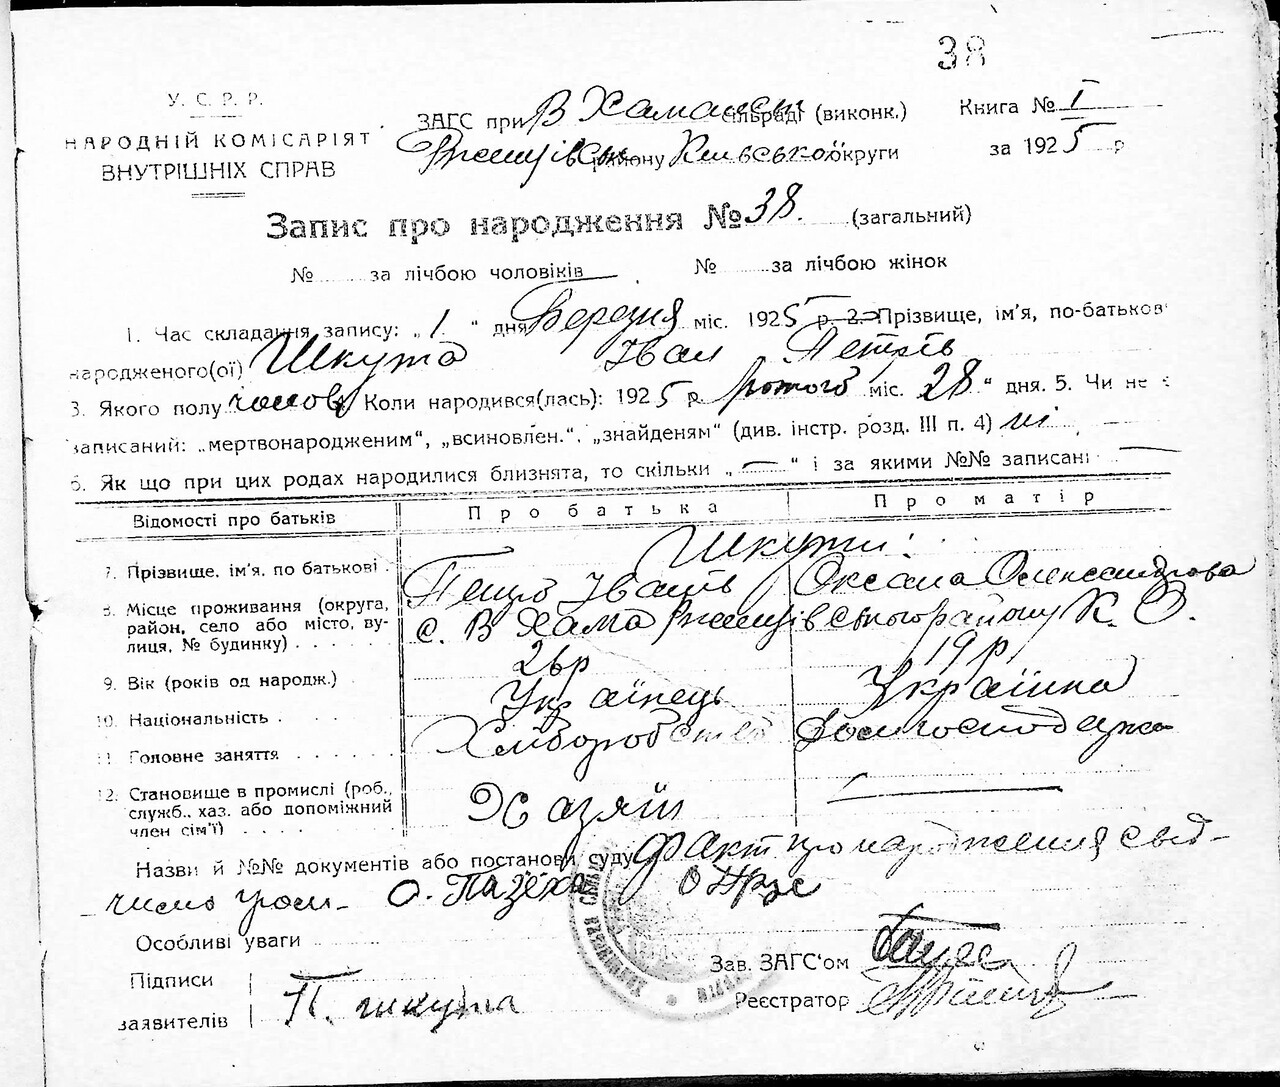 38
У. С. Р. Р.
НАРОДНІЙ КОМІСАРІЯТ
ВНУТРІШНІХ СПРАВ
ЗАГС при В Хамансь сільраді (виконк.)
Ржищівськ району Київської округи
Книга № I
за 1925 р
Запис про народження № 38. (загальний)
№ за лічбою чоловіків № за лічбою жінок
1. Час складання запису: „ 1. " дня Березня міс. 1925 р. 2. Прізвище, ім'я, по-батькові
народженого(ої) Шкута Іван Петрів
3. Якого полу чолов. Коли народився(лась): 1925 р Лютого міс. 28 " дня. 5. Чи не є
записаний: „мертвонародженим", „всиновлен.", „знайденям" (див. інстр. розд. III п. 4) ні
6. Як що при цих родах народилися близнята, то скільки „ — " і за якими №№ записані —
Відомості про батьків Про батька Про матір
7. Прізвище, ім'я, по батькові Шкути:
Петро Іванів Оксана Олександрова
8. Місце проживання (округа, район, село або місто, вулиця, № будинку) с. В Хама Ржищівського району К. О.
9. Вік (років од народж.) 26р 19 р
10. Національність Українець Українка
11. Головне заняття Хлібороб Домгосподарка
12. Становище в промислі (роб., служб., хаз. або допоміжний член сім'ї) Хазяїн —
Назви й №№ документів або постанови суду Факт про народження свід-
чино гром. О. Пазеха
Особливі уваги
Підписи
заявителів П. шкута
Зав. ЗАГС'ом
Реєстратор